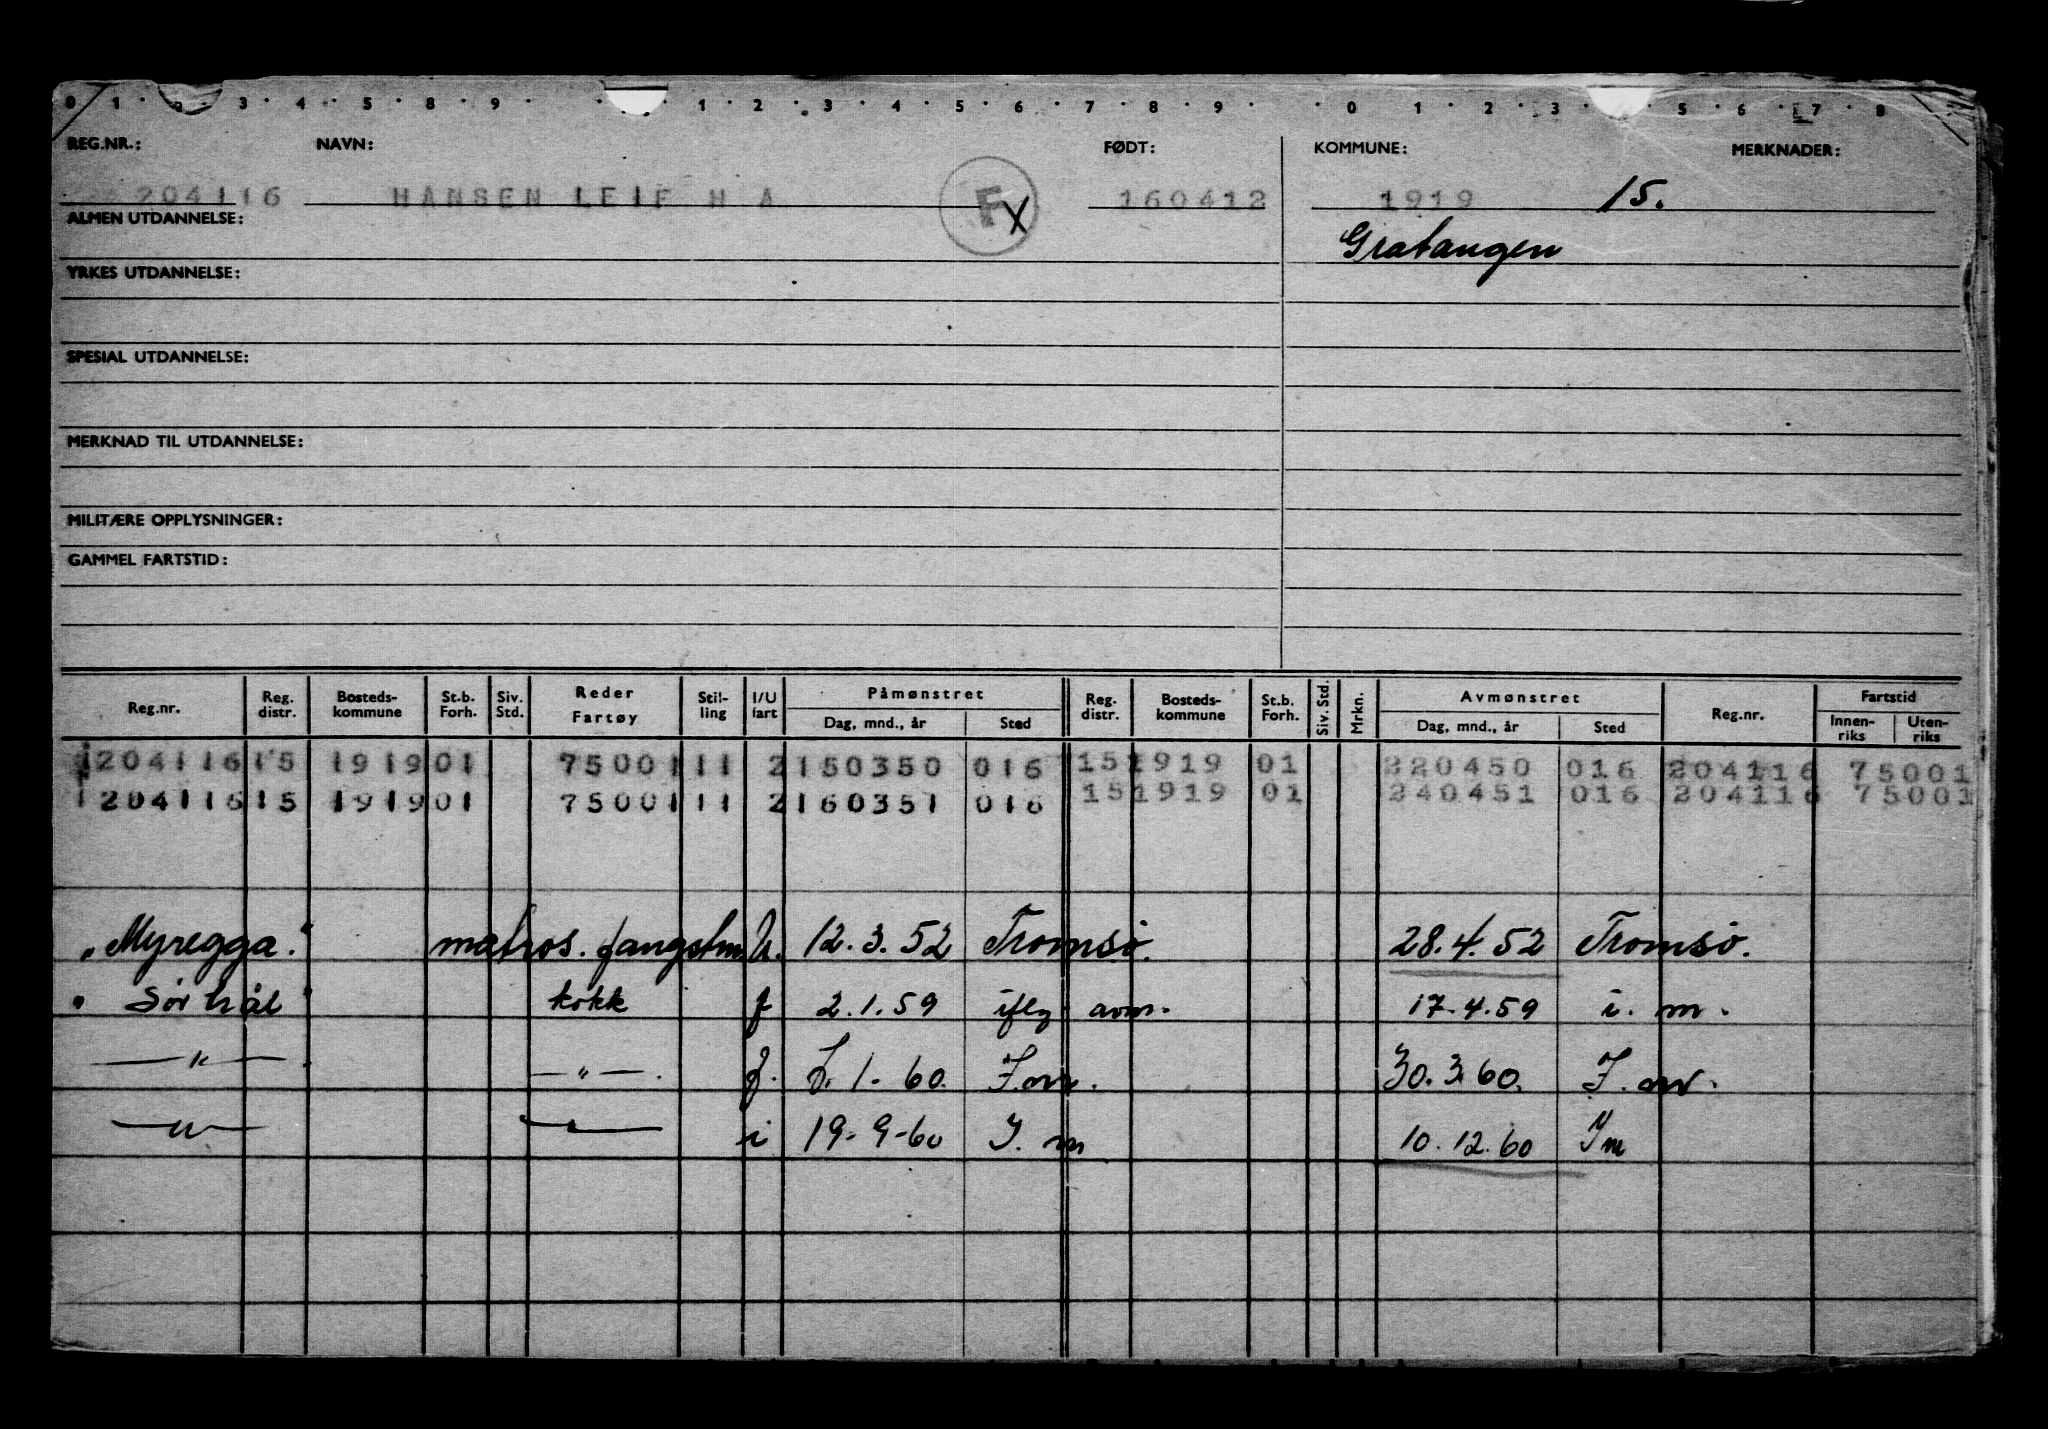 0 1 · 2 · 3 · 4 · 5 · 8 · 9 · · · 1 · 2 · 3 · 4 · 5 · 6 · 7 · 8 · 9 · · 0 · 1 · 2 · 3 · 5 · 6 · 7 · 8
REG.NR.: NAVN: FØDT: KOMMUNE: MERKNADER:
204116 HANSEN LEIF H A F X 160412 1919 15.
ALMEN UTDANNELSE: Gratangen
YRKES UTDANNELSE:
SPESIAL UTDANNELSE:
MERKNAD TIL UTDANNELSE:
MILITÆRE OPPLYSNINGER:
GAMMEL FARTSTID:
Reg.nr. Reg. distr. Bosteds- kommune St.b. Forh. Siv. Std. Reder Fartøy Stil- ling I/U fart Påmønstret Dag, mnd., år Sted Reg. distr. Bosteds- kommune St.b. Forh. Siv. Std. Mrkn. Avmønstret Dag, mnd., år Sted Reg.nr. Fartstid Innen- riks Uten- riks
1204116 15 1919 01 75001 11 2 150350 016 15 1919 01 220450 016 204116 75001
1204116 15 1919 01 75001 11 2 160351 016 15 1919 01 240451 016 204116 75001
"Myregga." matros. fangstm. U. 12.3.52 Tromsø. 28.4.52 Tromsø.
" Sørhål " kokk f 2.1.59 ifly avm. 17.4.59 i. m.
— " — . — " — . f. 2.1-60. 30.3.60.
— " — — " — i 19-9-60 I. m 10.12.60 Im